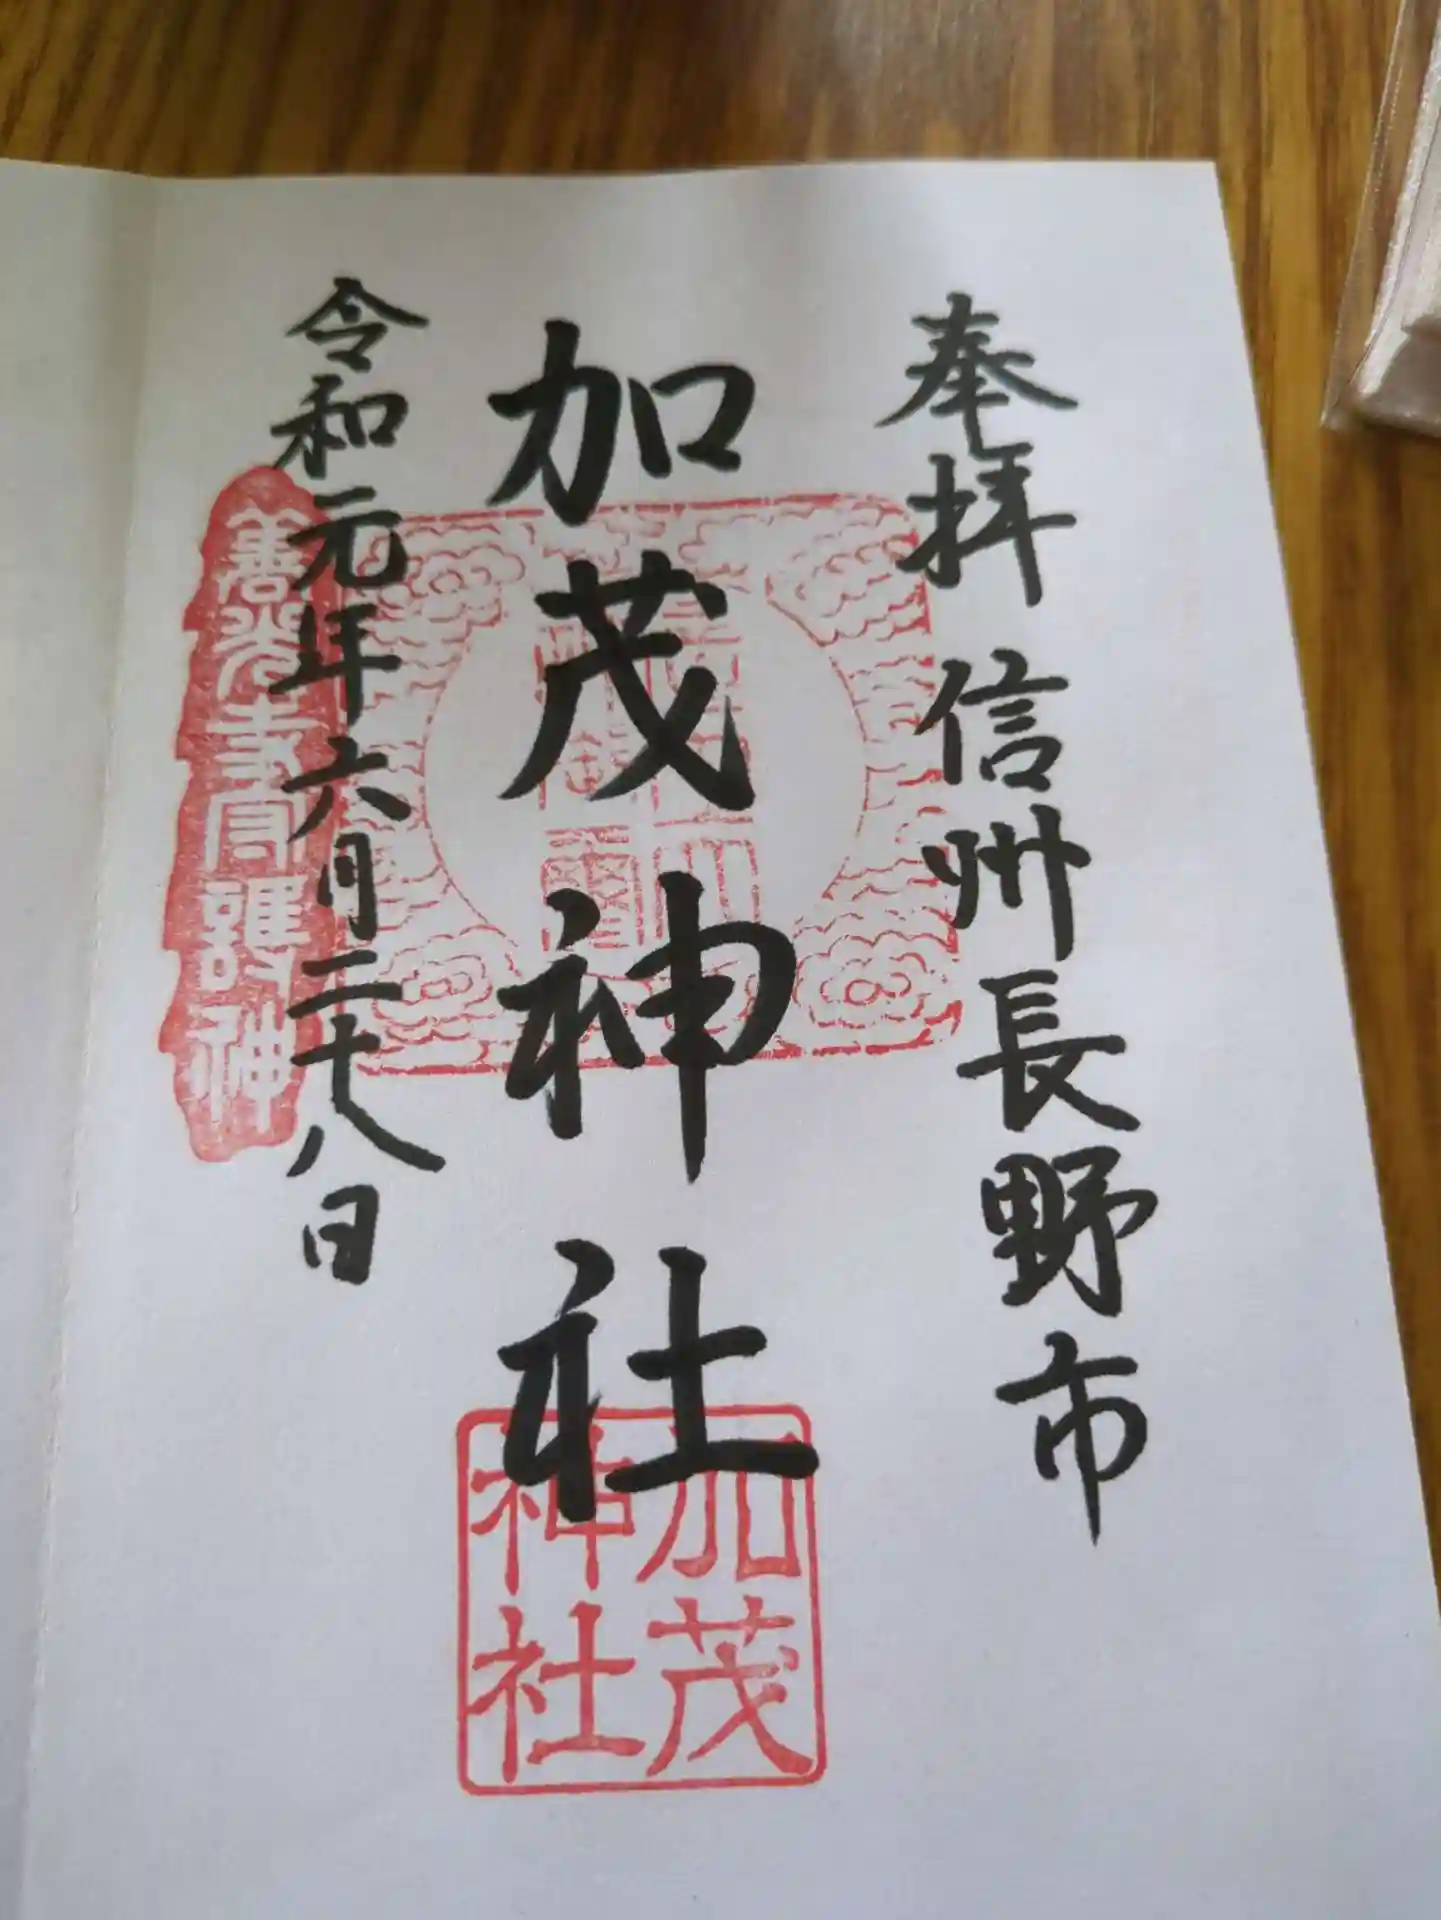 奉拝 信州長野市
加茂神社
令和元年六月二十八日
善光寺守護神
加茂
神社